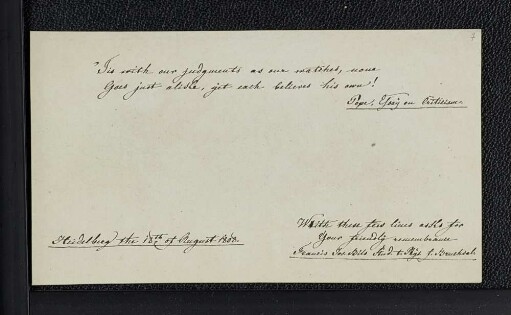 "Tis with our judgments as our watches, none
Goes just alike, yet each believes his own!
Pope, Essay on Criticism.
With these few lines asks for
Your friendly remembrance
Heidelberg the 18th of August 1808.
Francis Jos.